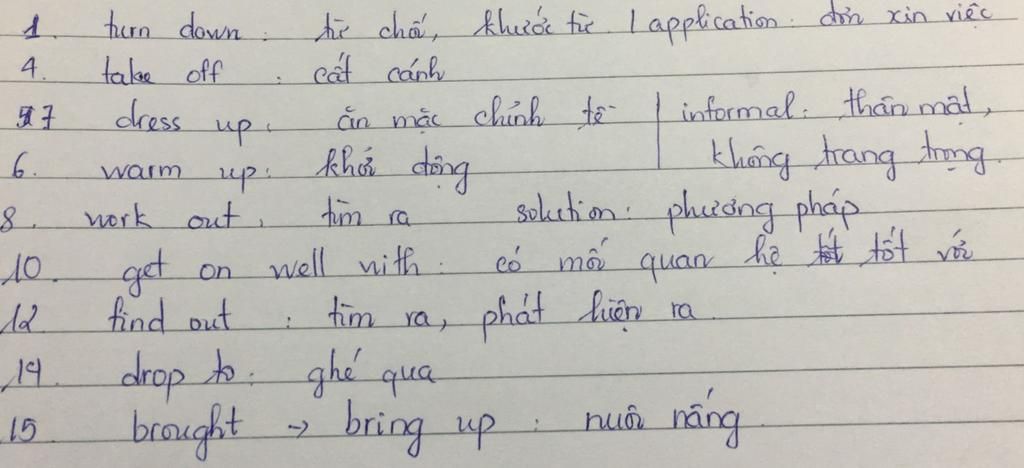 1. turn down: từ chối, khước từ / application: đơn xin việc
4. take off: cất cánh
7 dress up: ăn mặc chỉnh tề | informal: thân mật,
6. warm up: khởi động | không trang trọng.
8. work out: tìm ra solution: phương pháp
10. get on well with: có mối quan hệ tốt với
12. find out: tìm ra, phát hiện ra
14. drop to: ghé qua
15 brought → bring up: nuôi nấng